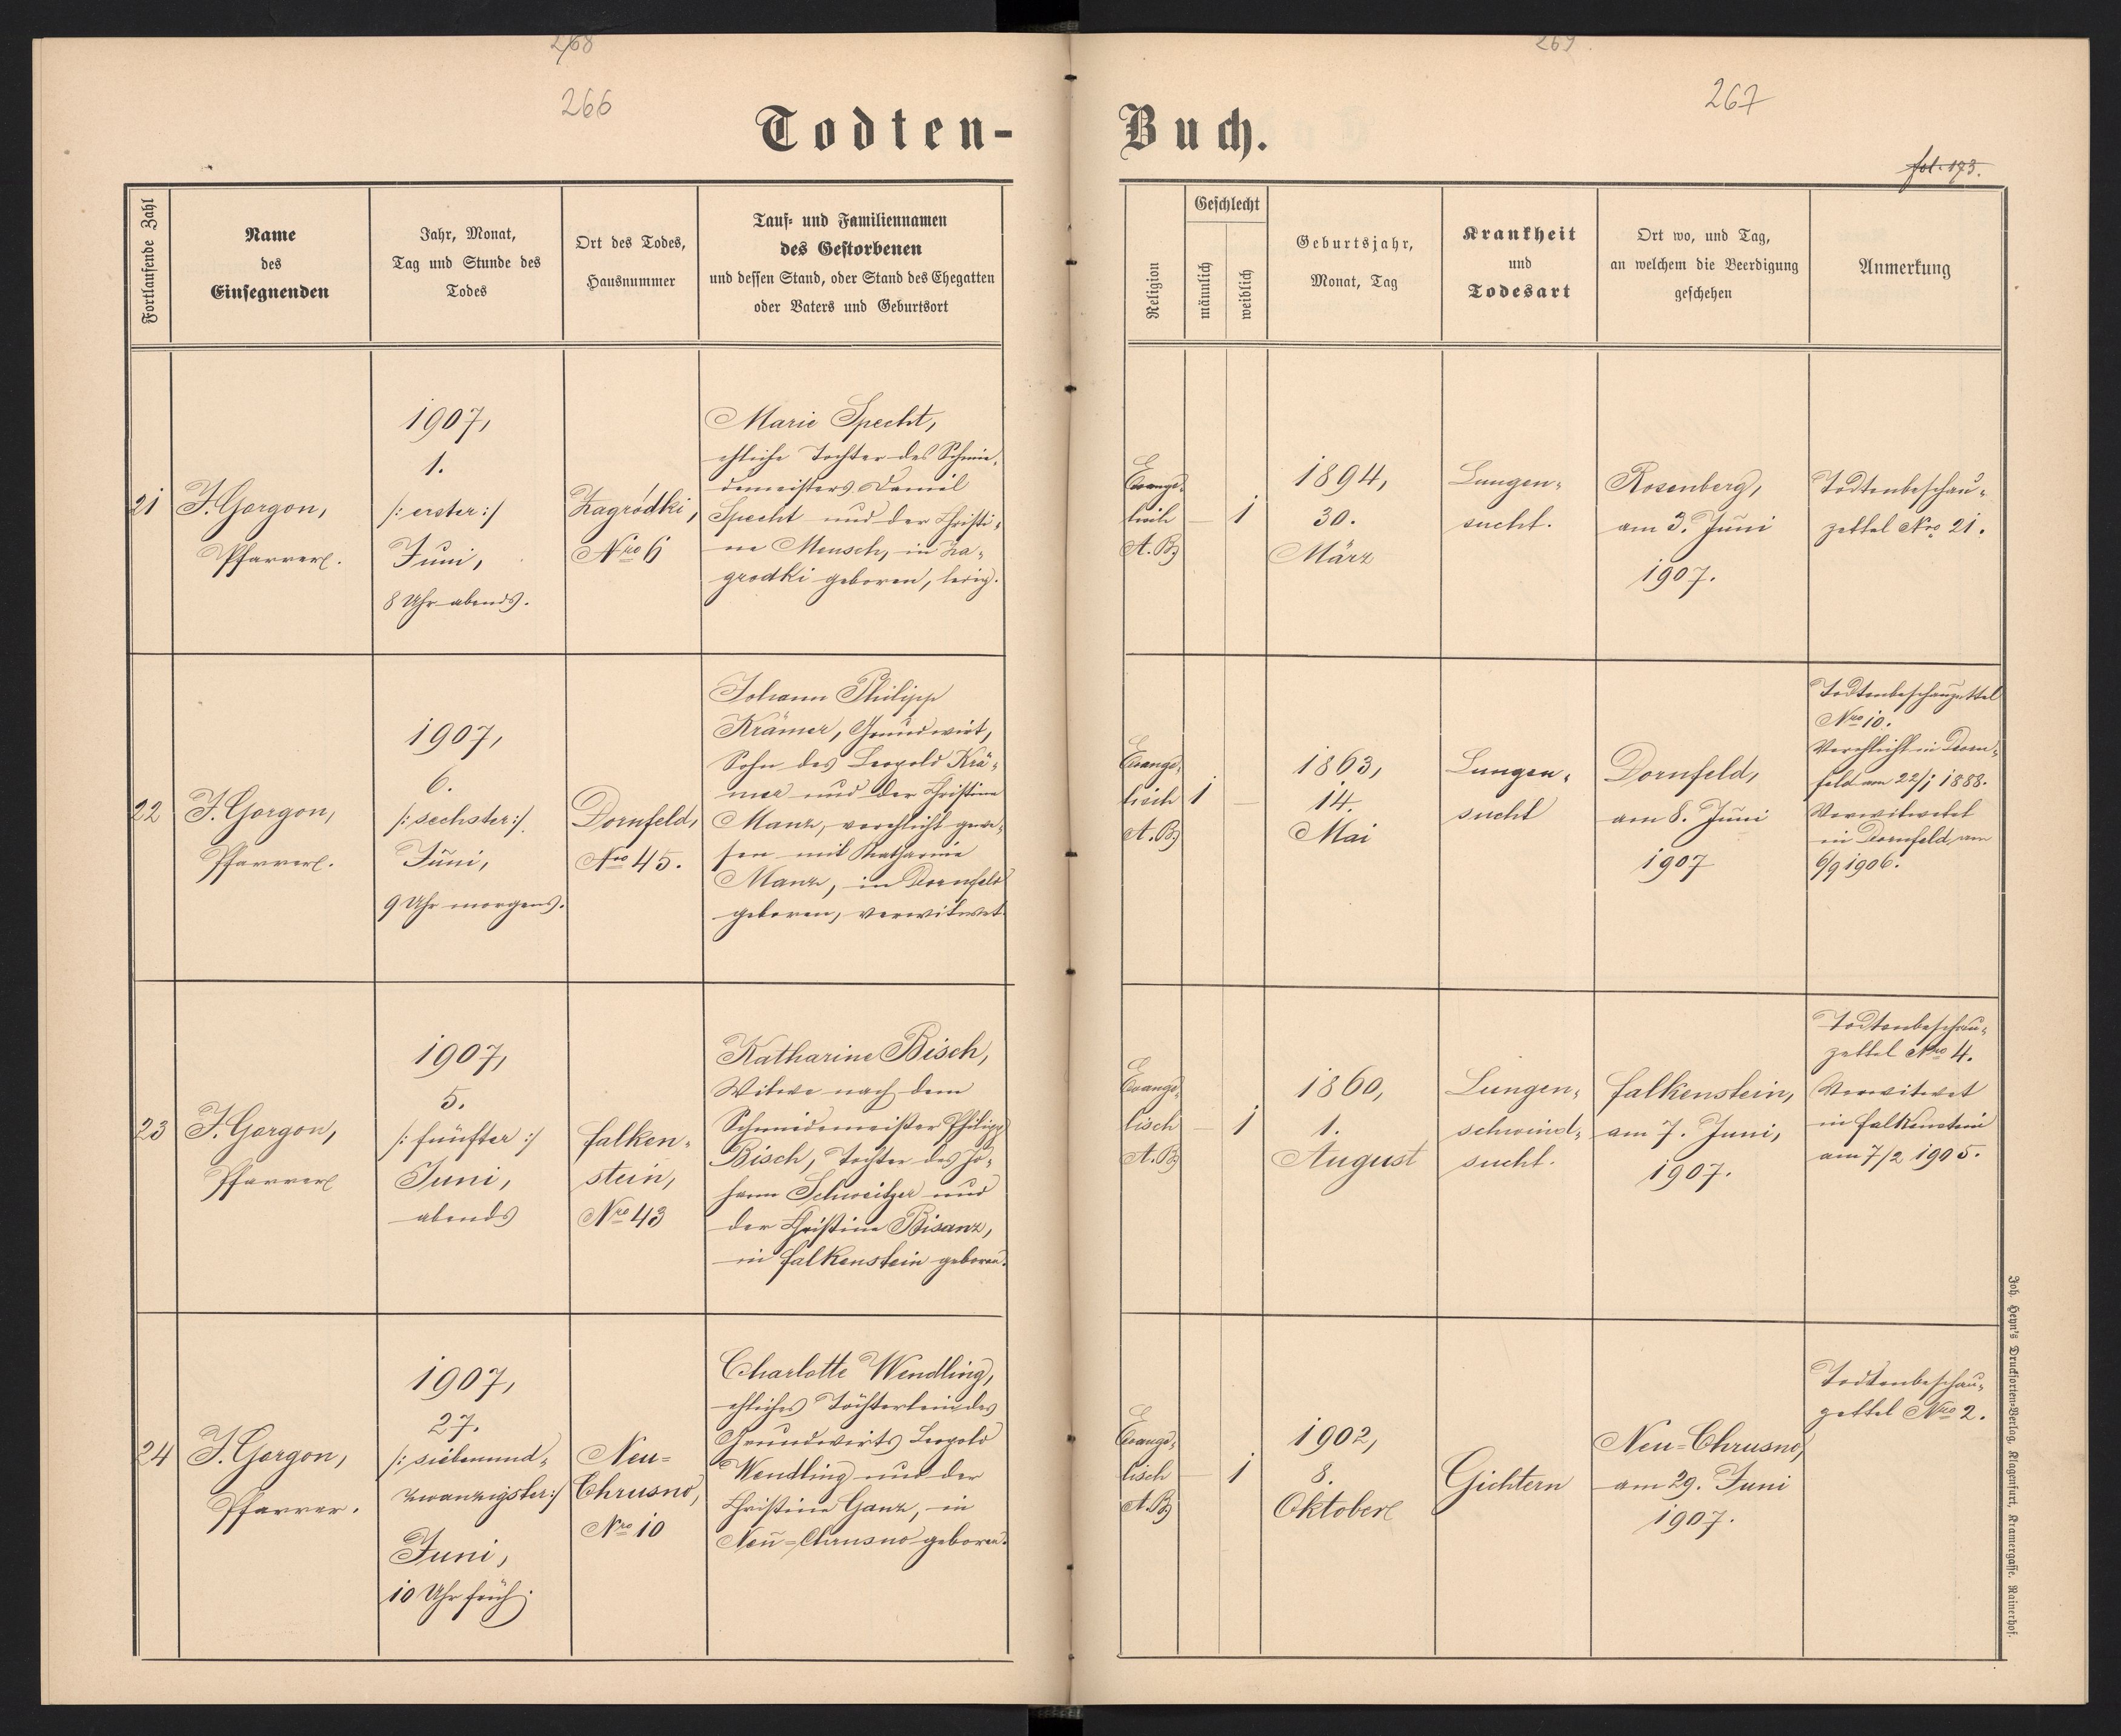 268
266
Todten-
Fortlaufende Zahl
Name
des
Einsegnenden
Jahr, Monat,
Tag und Stunde des
Todes
Ort des Todes,
Hausnummer
Tauf- und Familiennamen
des Gestorbenen
und dessen Stand, oder Stand des Ehegatten
oder Vaters und Geburtsort
21
J. Gorgon,
Pfarrer.
1907,
1.
/: erster :/
Juni,
8 Uhr abends.
Zagródki,
Nro 6
Marie Specht,
ehliche Tochter des Schmie-
demeisters Daniel
Specht und der Christi-
ne Mensch, in Za-
grodki geboren, ledig.
22
J. Gorgon,
Pfarrer.
1907,
6.
/: sechster :/
Juni,
9 Uhr morgens.
Dornfeld,
Nro 45.
Johann Philipp
Krämer, Grundwirt,
Sohn des Leopold Krä-
mer und der Christine
Manz, verehlicht gewe-
sen mit Katharine
Manz, in Dornfeld
geboren, verwitwet.
23
J. Gorgon,
Pfarrer
1907,
5.
/: fünfter :/
Juni,
abends
Falken-
stein,
Nro 43
Katharine Bisch,
Witwe nach dem
Schmiedemeister Philipp
Bisch, Tochter des Jo-
hann Schweitzer und
der Christine Bisanz,
in Falkenstein geboren.
24
J. Gorgon,
Pfarrer.
1907,
27.
/: siebenund-
zwanzigster :/
Juni,
10 Uhr früh.
Neu-
Chrusno,
Nro 10
Charlotte Wendling,
ehliches Töchterlein des
Grundwirts Leopold
Wendling und der
Christine Ganz, in
Neu-Chrusno geboren.
269.
267
Buch.
fol. 173.
Religion
Geschlecht
männlich
weiblich
Geburtsjahr,
Monat, Tag
Krankheit
und
Todesart
Ort wo, und Tag,
an welchem die Beerdigung
geschehen
Anmerkung
Evange-
lisch
A. B.
— 1
1894,
30.
März
Lungen-
sucht.
Rosenberg,
am 3. Juni
1907.
Todtenbeschau-
zettel Nro 21.
Evange-
lisch
A. B.
1 —
1863,
14.
Mai
Lungen-
sucht
Dornfeld,
am 8. Juni
1907
Todtenbeschauzettel
Nro 10.
Verehlicht in Dorn-
feld am 22/1 1888.
Verwitwet
in Dornfeld am
6/9 1906.
Evange-
lisch
A. B.
— 1
1860,
1.
August
Lungen-
schwind-
sucht.
Falkenstein,
am 7. Juni,
1907.
Todtenbeschau-
zettel Nro 4.
Verwitwet
in Falkenstein
am 7/2 1905.
Evange-
lisch
A. B.
— 1
1902,
8.
Oktober
Gichtern
Neu-Chrusno,
am 29. Juni
1907.
Todtenbeschau-
zettel Nro 2.
Joh. Heyn's Drucksorten-Verlag, Klagenfurt, Kramergasse. Rainerhof.